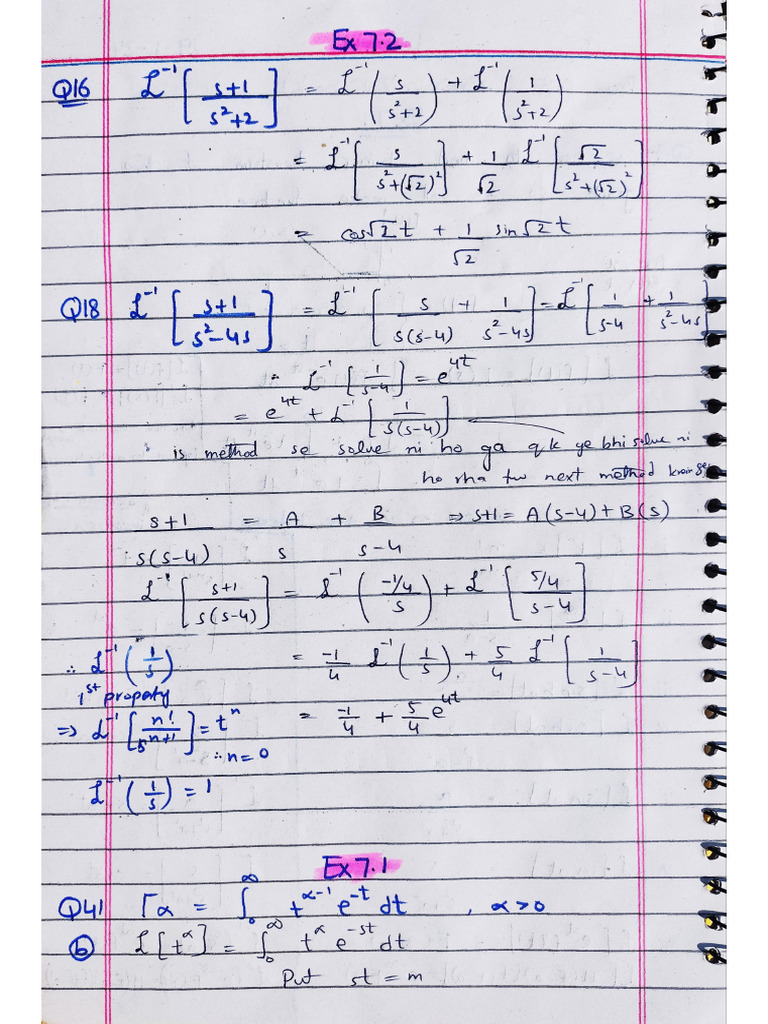 Ex 7.2
Q16 L⁻¹[(s+1)/(s²+2)] = L⁻¹(s/(s²+2)) + L⁻¹(1/(s²+2))
= L⁻¹[s/(s²+(√2)²)] + 1/√2 L⁻¹[√2/(s²+(√2)²)]
= cos√2t + 1/√2 sin√2t
Q18 L⁻¹[(s+1)/(s²-4s)] = L⁻¹[s/(s(s-4)) + 1/(s²-4s)] = L⁻¹[1/(s-4) + 1/(s²-4s)]
∴ L⁻¹[1/(s-4)] = e⁴ᵗ
= e⁴ᵗ + L⁻¹[1/(s(s-4))]
is method se solve ni ho ga q k ye bhi solve ni
ho rha tw next method krain ge
(s+1)/(s(s-4)) = A/s + B/(s-4) ⇒ s+1 = A(s-4) + B(s)
L⁻¹[(s+1)/(s(s-4))] = L⁻¹((-1/4)/s) + L⁻¹[(5/4)/(s-4)]
∴ L⁻¹(1/s) = -1/4 L⁻¹(1/s) + 5/4 L⁻¹[1/(s-4)]
1st property
⇒ L⁻¹[n!/sⁿ⁺¹] = tⁿ = -1/4 + 5/4 e⁴ᵗ
∴ n=0
L⁻¹(1/s) = 1
Ex 7.1
Q41 Γα = ∫₀^∞ t^(α-1) e^(-t) dt , α>0
(b) L[t^α] = ∫₀^∞ t^α e^(-st) dt
Put st = m